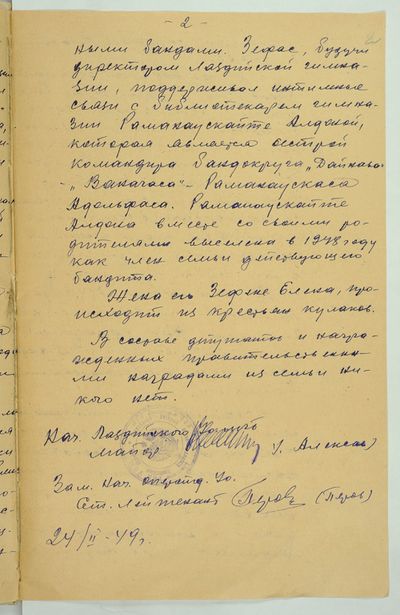 - 2 -
ными бандами. Зефас, будучи
директором Лаздийской гимна-
зии, поддерживал интимные
связи с библиотекарем гимна-
зии Раманаускайте Алдоной,
которая является сестрой
командира бандокруга „Дайнава"
- „Ванагаса" - Раманаускаса
Адольфаса. Раманаускайте
Алдона вместе со своими ро-
дителями выселена в 1948 году
как член семьи действующего
бандита.
Жена его Зефене Елена, про-
исходит из крестьян кулаков.
В составе депутатов и награ-
жденных правительственны-
ми наградами из семьи ни-
кого нет.
Нач. Лаздийского
Майор
Зам. нач.
Ст. Лейтенант Перов (Перов)
24/II - 49 г.